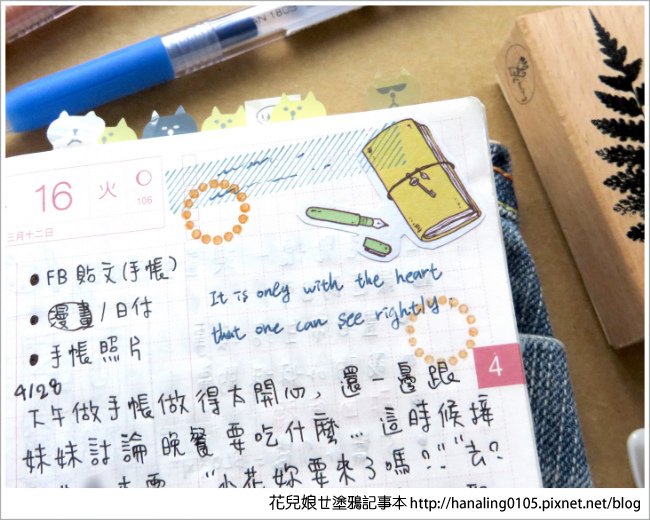 16 火
106
三月十二日
● FB 貼文(手帳)
● 漫畫/日付
● 手帳照片
It is only with the heart
that one can see rightly.
4
4/28
下午做手帳做得太開心,還一邊跟
妹妹討論晚餐要吃什麼…這時候接
"小花妳要來了嗎?""去?
花兒娘ㄝ塗鴉記事本 http://hanaling0105.pixnet.net/blog